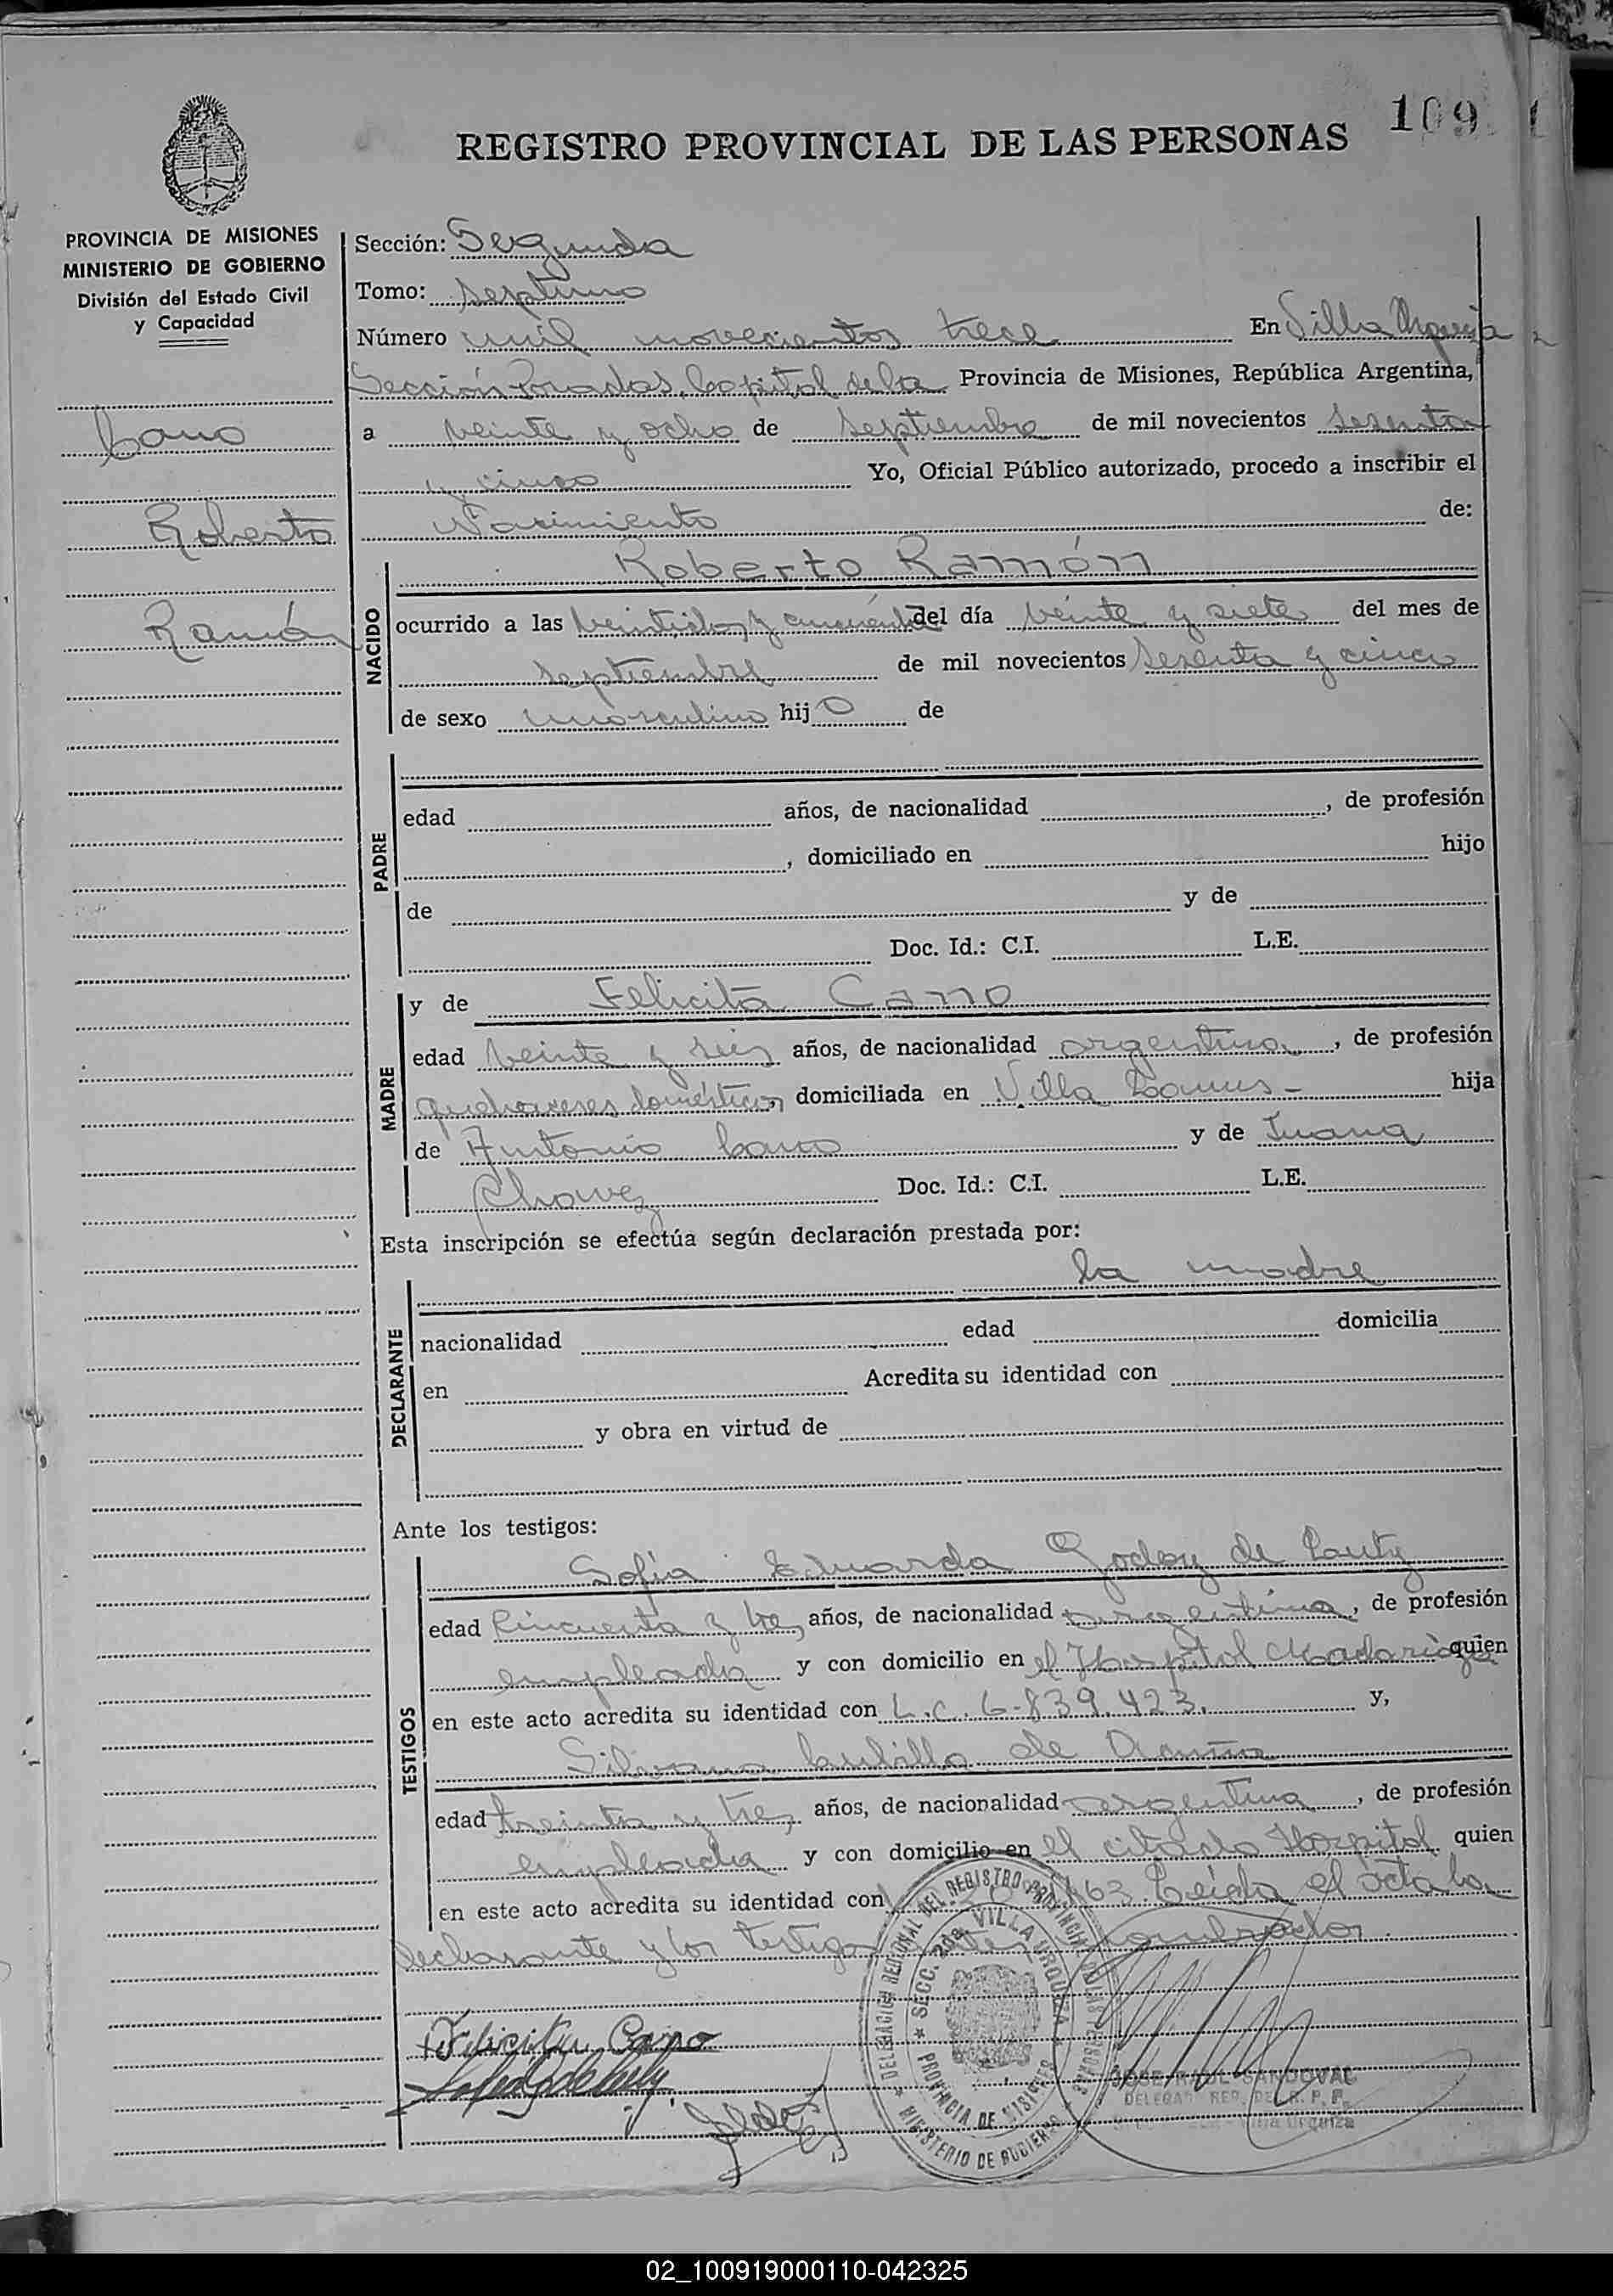 109
REGISTRO PROVINCIAL DE LAS PERSONAS
PROVINCIA DE MISIONES
MINISTERIO DE GOBIERNO
División del Estado Civil
y Capacidad
Cano
Roberto
Ramón
Sección: Segunda
Tomo: septimo
Número mil novecientos trece En Villa Urquiza
Sección Posadas, Capital de la Provincia de Misiones, República Argentina,
a veinte y ocho de septiembre de mil novecientos sesenta
y cinco Yo, Oficial Público autorizado, procedo a inscribir el
Nacimiento de:
NACIDO
Roberto Ramón
ocurrido a las y cincuenta del día veinte y siete del mes de
septiembre de mil novecientos sesenta y cinco
de sexo masculino hijo de
PADRE
edad años, de nacionalidad , de profesión
, domiciliado en hijo
de y de
Doc. Id.: C.I. L.E.
MADRE
y de Felicita Cano
edad veinte y seis años, de nacionalidad argentina, de profesión
quehaceres domésticos, domiciliada en Villa Lanus - hija
de Antonio Cano y de Juana
Chavez Doc. Id.: C.I. L.E.
Esta inscripción se efectúa según declaración prestada por:
la madre
DECLARANTE
nacionalidad edad domicilia
en Acredita su identidad con
y obra en virtud de
Ante los testigos:
TESTIGOS
Sofia Eduarda Godoy de
edad Cincuenta y tres años, de nacionalidad argentina, de profesión
empleada y con domicilio en el Hospital Madariaga quien
en este acto acredita su identidad con L.C. 6.839.423. y,
Silvana de Acuña
edad treinta y tres años, de nacionalidad argentina, de profesión
empleada y con domicilio en el citado Hospital quien
en este acto acredita su identidad con 163 Leída el acta la
declarante y los testigos nombrados.
Felicita Cano
DELEGACION REGIONAL DEL REGISTRO PROVINCIAL DE LAS PERSONAS
SECC. 2da. VILLA URQUIZA
PROVINCIA DE MISIONES
MINISTERIO DE GOBIERNO
JOSE RAUL SANDOVAL
Villa Urquiza
02_100919000110-042325